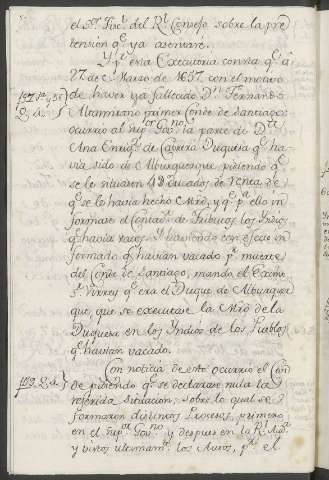 el S.or Fisc.l del R.l Consejo sobre la pre
tension q.e ya asentaré.
Y p.r esta Executoria consta q.e á
27 de Marzo de 1657 con el motivo
de haver ya fallecido D.n Fernando
Altamirano primer Conde de Santiago
ocurrio al sup.or Gov.no la parte de D.ña
Ana Enriq.z de Cabrera Duquesa q.e ha
vía sido de Alburquerque pidiendo q.e
se le situasen 48 ducados de renta de
q.e se le havia hecho Mrd, y q.e p.a ello in
formase el Contad.r de Tributos los Indios
q.e havia vacos. Y haviendo con efecto in
formado q.e havian vacado p.r muerte
del Conde de Santiago, mandó el Exmo.
S.r Virrey q.e era el Duque de Alburquer
que, que se executase la Mrd de la
Duquesa en los Yndios de los Pueblos
q.e havian vacado.
Con noticia de esto ocurrió el Con
de pidiendo q.e se declarase nula la
referida situacion; sobre lo qual se
formaron distintos Procesos, primero
en el sup.or Gov.no y despues en la R.l Aud.a
y vistos ultimam.te los Autos, p.r el